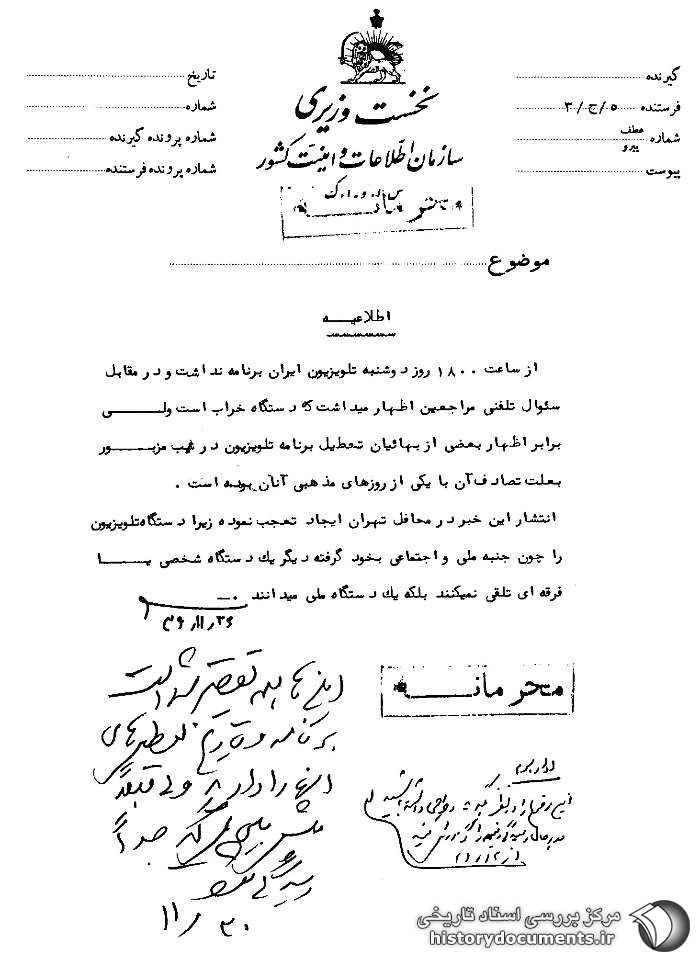 نخست وزیری
سازمان اطلاعات و امنیت کشور
س.ا.و.ا.ک
محرمانه
گیرنده
فرستنده ۵/ج/۳
شماره عطف پیرو
پیوست
تاریخ
شماره
شماره پرونده گیرنده
شماره پرونده فرستنده
موضوع
اطلاعیه
از ساعت ۱۸۰۰ روز دوشنبه تلویزیون ایران برنامه نداشت و در مقابل
سئوال تلفنی مراجعین اظهار میداشت که دستگاه خراب است ولی
برابر اظهار بعضی از بهائیان تعطیل برنامه تلویزیون در شب مزبور
بعلت تصادف آن با یکی از روزهای مذهبی آنان بوده است .
انتشار این خبر در محافل تهران ایجاد تعجب نموده زیرا دستگاه تلویزیون
را چون جنبه ملی و اجتماعی بخود گرفته دیگر یك دستگاه شخصی یا
فرقه ای تلقی نمیکنند بلکه یك دستگاه ملی میدانند .
محرمانه
جداً
رسیدگی شود
۳۰/۱۱
مرکز بررسی اسناد تاریخی
historydocuments.ir